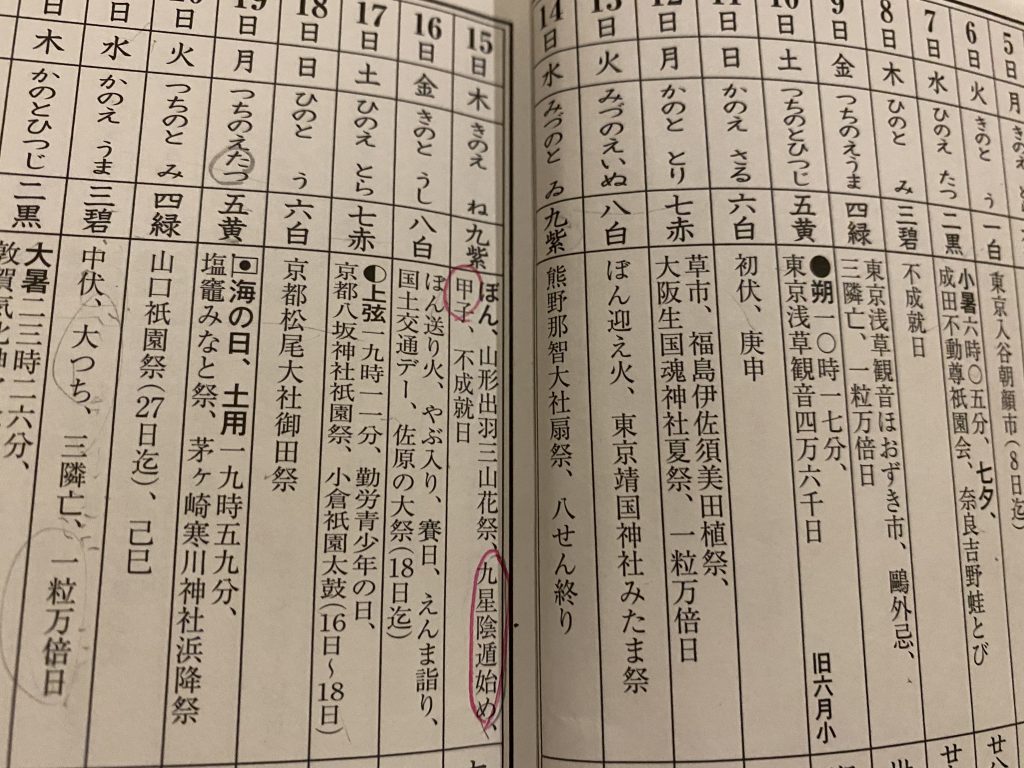 5日 月
6日 火 きのと う 一白 東京入谷朝顔市（8日迄）
7日 水 ひのえ たつ 二黒 小暑六時〇五分、七夕、
成田不動尊祇園会、奈良吉野蛙とび
8日 木 ひのと み 三碧 不成就日
9日 金 つちのえうま 四緑 東京浅草観音ほおずき市、鷗外忌、
三隣亡、一粒万倍日
10日 土 つちのとひつじ 五黄 ●朔一〇時一七分、 旧六月小
東京浅草観音四万六千日
11日 日 かのえ さる 六白 初伏、庚申
12日 月 かのと とり 七赤 草市、福島伊佐須美田植祭、
大阪生国魂神社夏祭、一粒万倍日
13日 火 みづのえいぬ 八白 ぼん迎え火、東京靖国神社みたま祭
14日 水 みづのと ゐ 九紫 熊野那智大社扇祭、八せん終り
15日 木 きのえ ね 九紫 ぼん、山形出羽三山花祭、九星陰遁始め、
甲子、不成就日
16日 金 きのと うし 八白 ぼん送り火、やぶ入り、賽日、えんま詣り、
国土交通デー、佐原の大祭（18日迄）
17日 土 ひのえ とら 七赤 ◐上弦一九時一一分、勤労青少年の日、
京都八坂神社祇園祭、小倉祇園太鼓（16日〜18日）
18日 日 ひのと う 六白 京都松尾大社御田祭
19日 月 つちのえたつ 五黄 海の日、土用一九時五九分、
塩竈みなと祭、茅ヶ崎寒川神社浜降祭
火 つちのと み 四緑 山口祇園祭（27日迄）、己巳
水 かのえ うま 三碧 中伏、大つち、三隣亡、一粒万倍日
木 かのとひつじ 二黒 大暑二三時二六分、